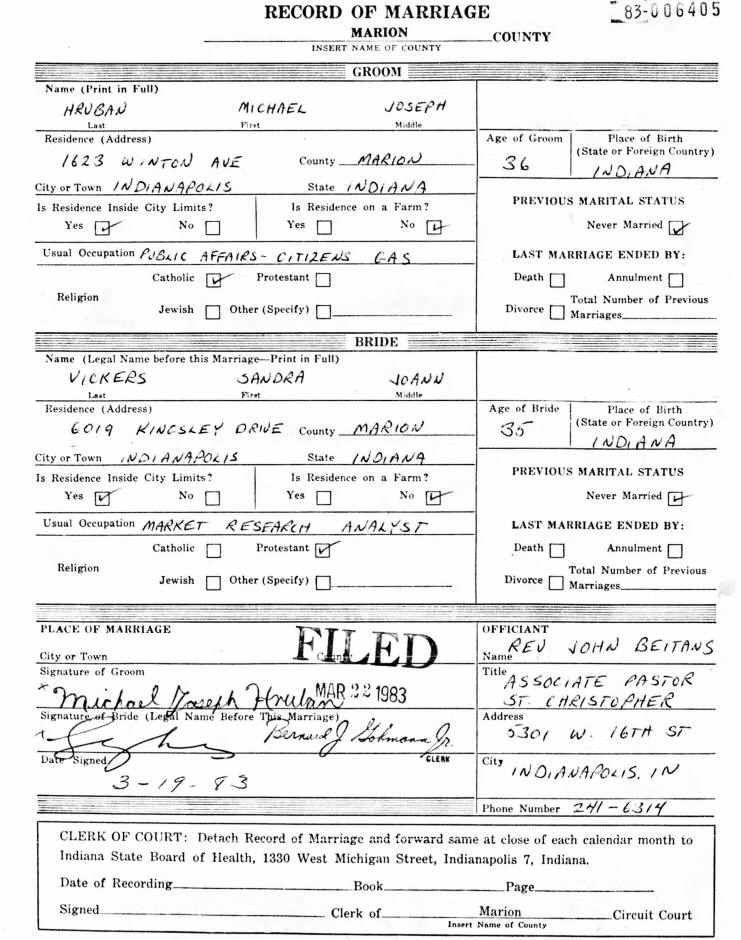 RECORD OF MARRIAGE
83-006405
MARION COUNTY
INSERT NAME OF COUNTY
GROOM
Name (Print in Full)
HRUBAN MICHAEL JOSEPH
Last First Middle
Residence (Address)
1623 WINTON AVE County MARION
City or Town INDIANAPOLIS State INDIANA
Age of Groom 36
Place of Birth
(State or Foreign Country)
INDIANA
Is Residence Inside City Limits? Is Residence on a Farm?
Yes No Yes No
PREVIOUS MARITAL STATUS
Never Married
Usual Occupation PUBLIC AFFAIRS - CITIZENS GAS
LAST MARRIAGE ENDED BY:
Catholic Protestant
Religion
Jewish Other (Specify)
Death Annulment
Divorce Total Number of Previous
Marriages
BRIDE
Name (Legal Name before this Marriage—Print in Full)
VICKERS SANDRA JOANN
Last First Middle
Residence (Address)
6019 KINGSLEY DRIVE County MARION
City or Town INDIANAPOLIS State INDIANA
Age of Bride 35
Place of Birth
(State or Foreign Country)
INDIANA
Is Residence Inside City Limits? Is Residence on a Farm?
Yes No Yes No
PREVIOUS MARITAL STATUS
Never Married
Usual Occupation MARKET RESEARCH ANALYST
LAST MARRIAGE ENDED BY:
Catholic Protestant
Religion
Jewish Other (Specify)
Death Annulment
Divorce Total Number of Previous
Marriages
PLACE OF MARRIAGE
City or Town
FILED
Signature of Groom
Michael Joseph Hruban
MAR 22 1983
Signature of Bride (Legal Name Before This Marriage)
Bernard J Gohmann Jr.
CLERK
Date Signed
3-19-83
OFFICIANT
Name REV JOHN BEITANS
Title ASSOCIATE PASTOR
ST. CHRISTOPHER
Address
5301 W. 16TH ST
City
INDIANAPOLIS, IN
Phone Number 241-6314
CLERK OF COURT: Detach Record of Marriage and forward same at close of each calendar month to
Indiana State Board of Health, 1330 West Michigan Street, Indianapolis 7, Indiana.
Date of Recording Book Page
Signed Clerk of Marion Circuit Court
Insert Name of County